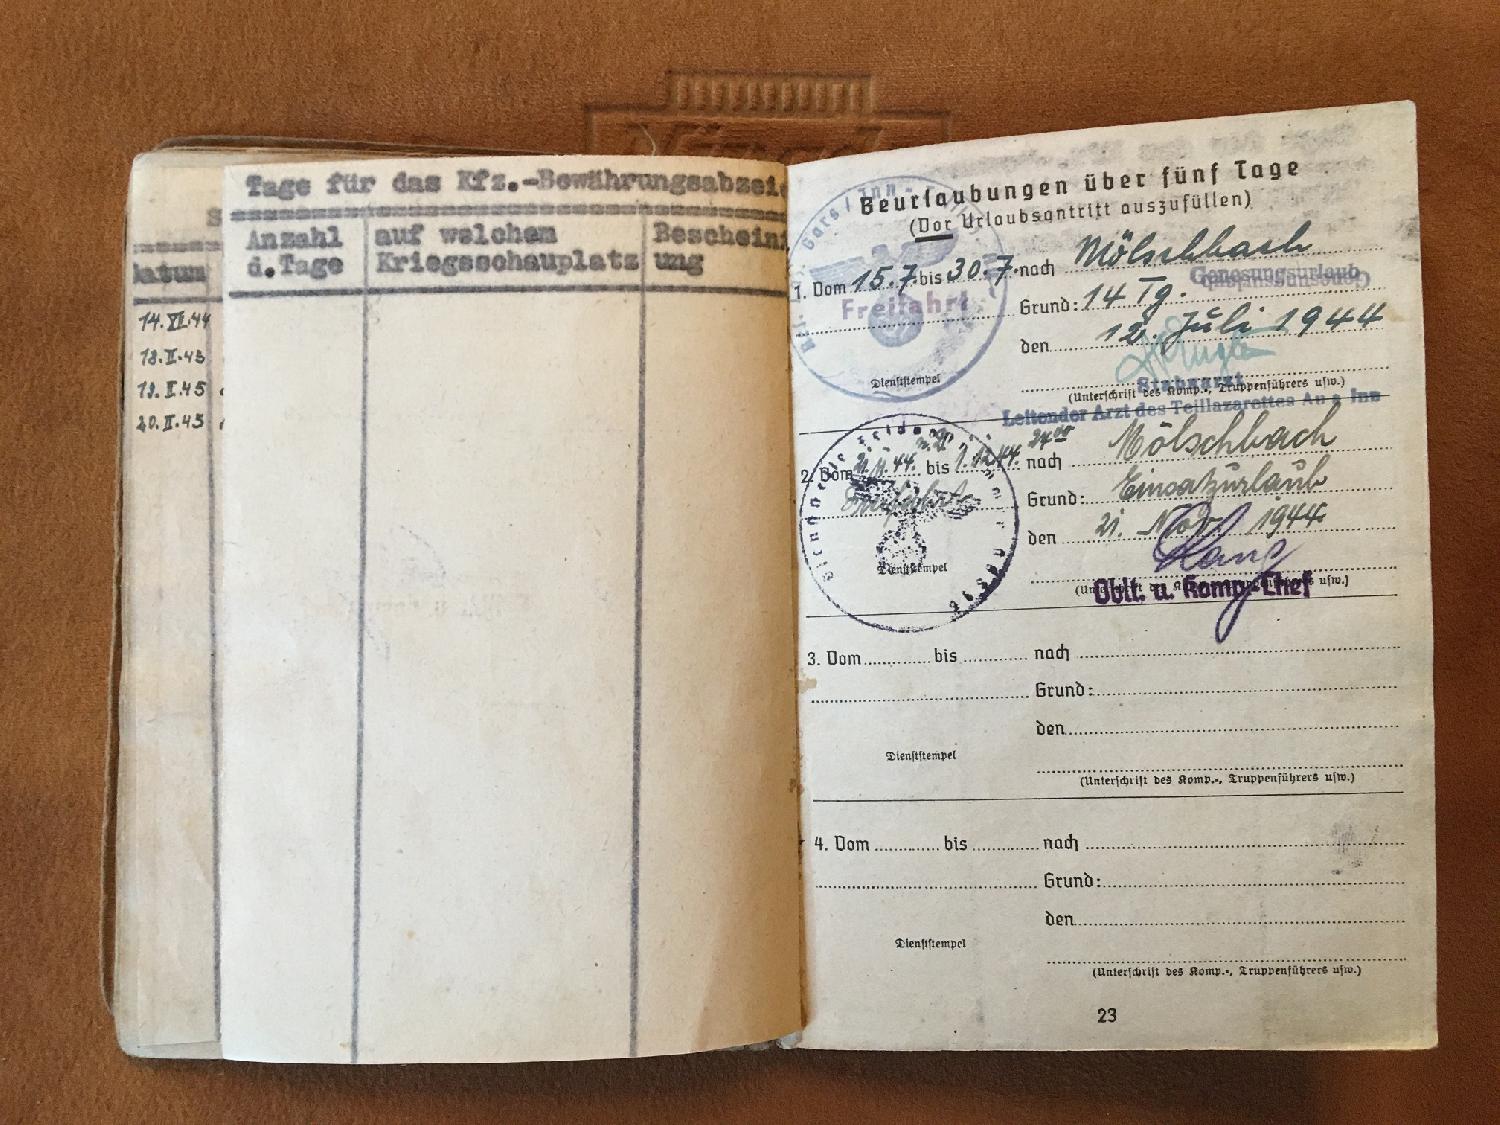 Tage für das Kfz.-Bewährungsabzei
Anzahl d. Tage
auf welchem Kriegsschauplatz
Bescheini ung
Datum
14. VI. 44
18. II. 45
19. II. 45
20. II. 45
Beurlaubungen über fünf Tage
(Vor Urlaubsantritt auszufüllen)
1. Vom 15.7. bis 30.7. nach Mölschbach
Genesungsurlaub
Freifahrt
Grund: 14 Tg.
den 12. Juli 1944
Dienststempel
Stabsarzt
(Unterschrift des Komp.-, Truppenführers usw.)
Leitender Arzt des Teillazarettes Au a Inn
2. Vom 21.11.44. bis 1.12.44. 24⁰⁰ nach Mölschbach
Grund: Einsatzurlaub
den 21. Nov. 1944
Dienststempel
(Unterschrift des Komp.-, Truppenführers usw.)
Oblt. u. Komp.-Chef
3. Vom bis nach
Grund:
den
Dienststempel
(Unterschrift des Komp.-, Truppenführers usw.)
4. Vom bis nach
Grund:
den
Dienststempel
(Unterschrift des Komp.-, Truppenführers usw.)
23